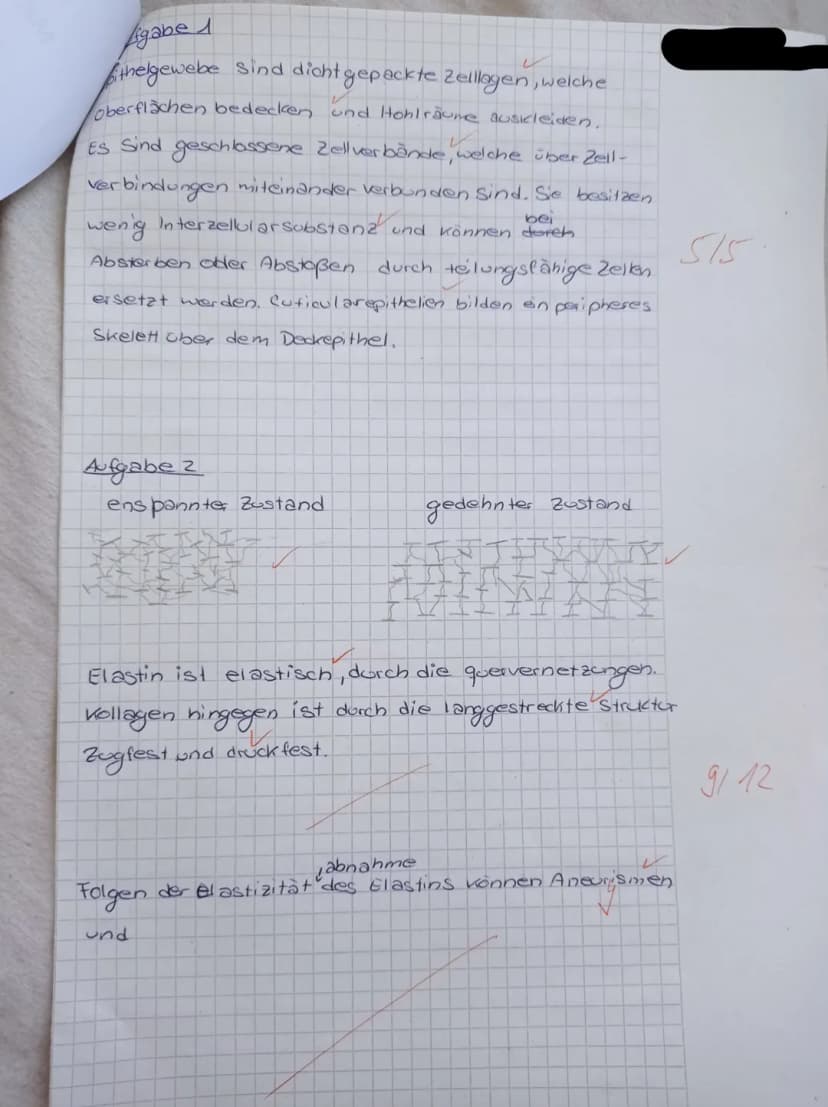 fgabe 1
ithelgewebe sind dichtgepackte Zelllagen, welche
oberflächen bedecken und Hohlräume auskleiden.
Es sind geschlossene Zellverbände, welche über Zell-
verbindungen miteinander verbunden sind. Sie besitzen
wenig Interzellularsubstanz und können durch bei
Absterben oder Abstoßen durch teilungsfähige Zellen
ersetzt werden. Cuticularepithelien bilden ein peripheres
Skelett über dem Deckepithel.
5/5
Aufgabe 2
enspannter Zustand
gedehnter Zustand
Elastin ist elastisch, durch die quervernetzungen.
Kollagen hingegen ist durch die langgestreckte Struktur
Zugfest und druckfest.
9/12
Folgen der Elastizität, abnahme des Elastins können Aneurysmen
und